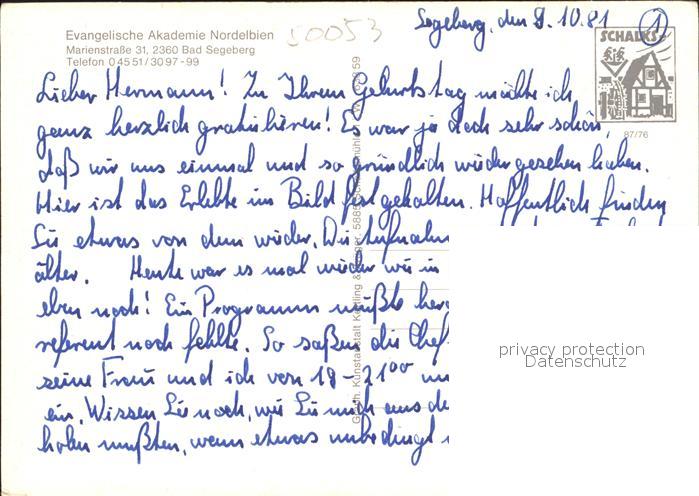 Evangelische Akademie Nordelbien
Marienstraße 31, 2360 Bad Segeberg
Telefon 0 45 51 / 30 97 - 99
50053
Segeberg, den 9.10.81
1
SCHALKS
87/76
Lieber Hermann! Zu Ihrem Geburtstag möchte ich
ganz herzlich gratulieren! Es war ja doch sehr schön,
daß wir uns einmal und so gründlich wiedergesehen haben.
Hier ist das Erlebte im Bild festgehalten. Hoffentlich finden
Sie etwas von dem wieder. Die Aufnahm
älter. Heute war es mal wieder wie in
eben noch! Ein Programm mußte her
referent noch fehlte. So saßen die Chef
seine Frau und ich von 18 - 21⁰⁰ un
ein. Wissen Sie noch, wie Sie mich aus de
holen mußten, wenn etwas unbedingt
Kunstanstalt
privacy protection
Datenschutz